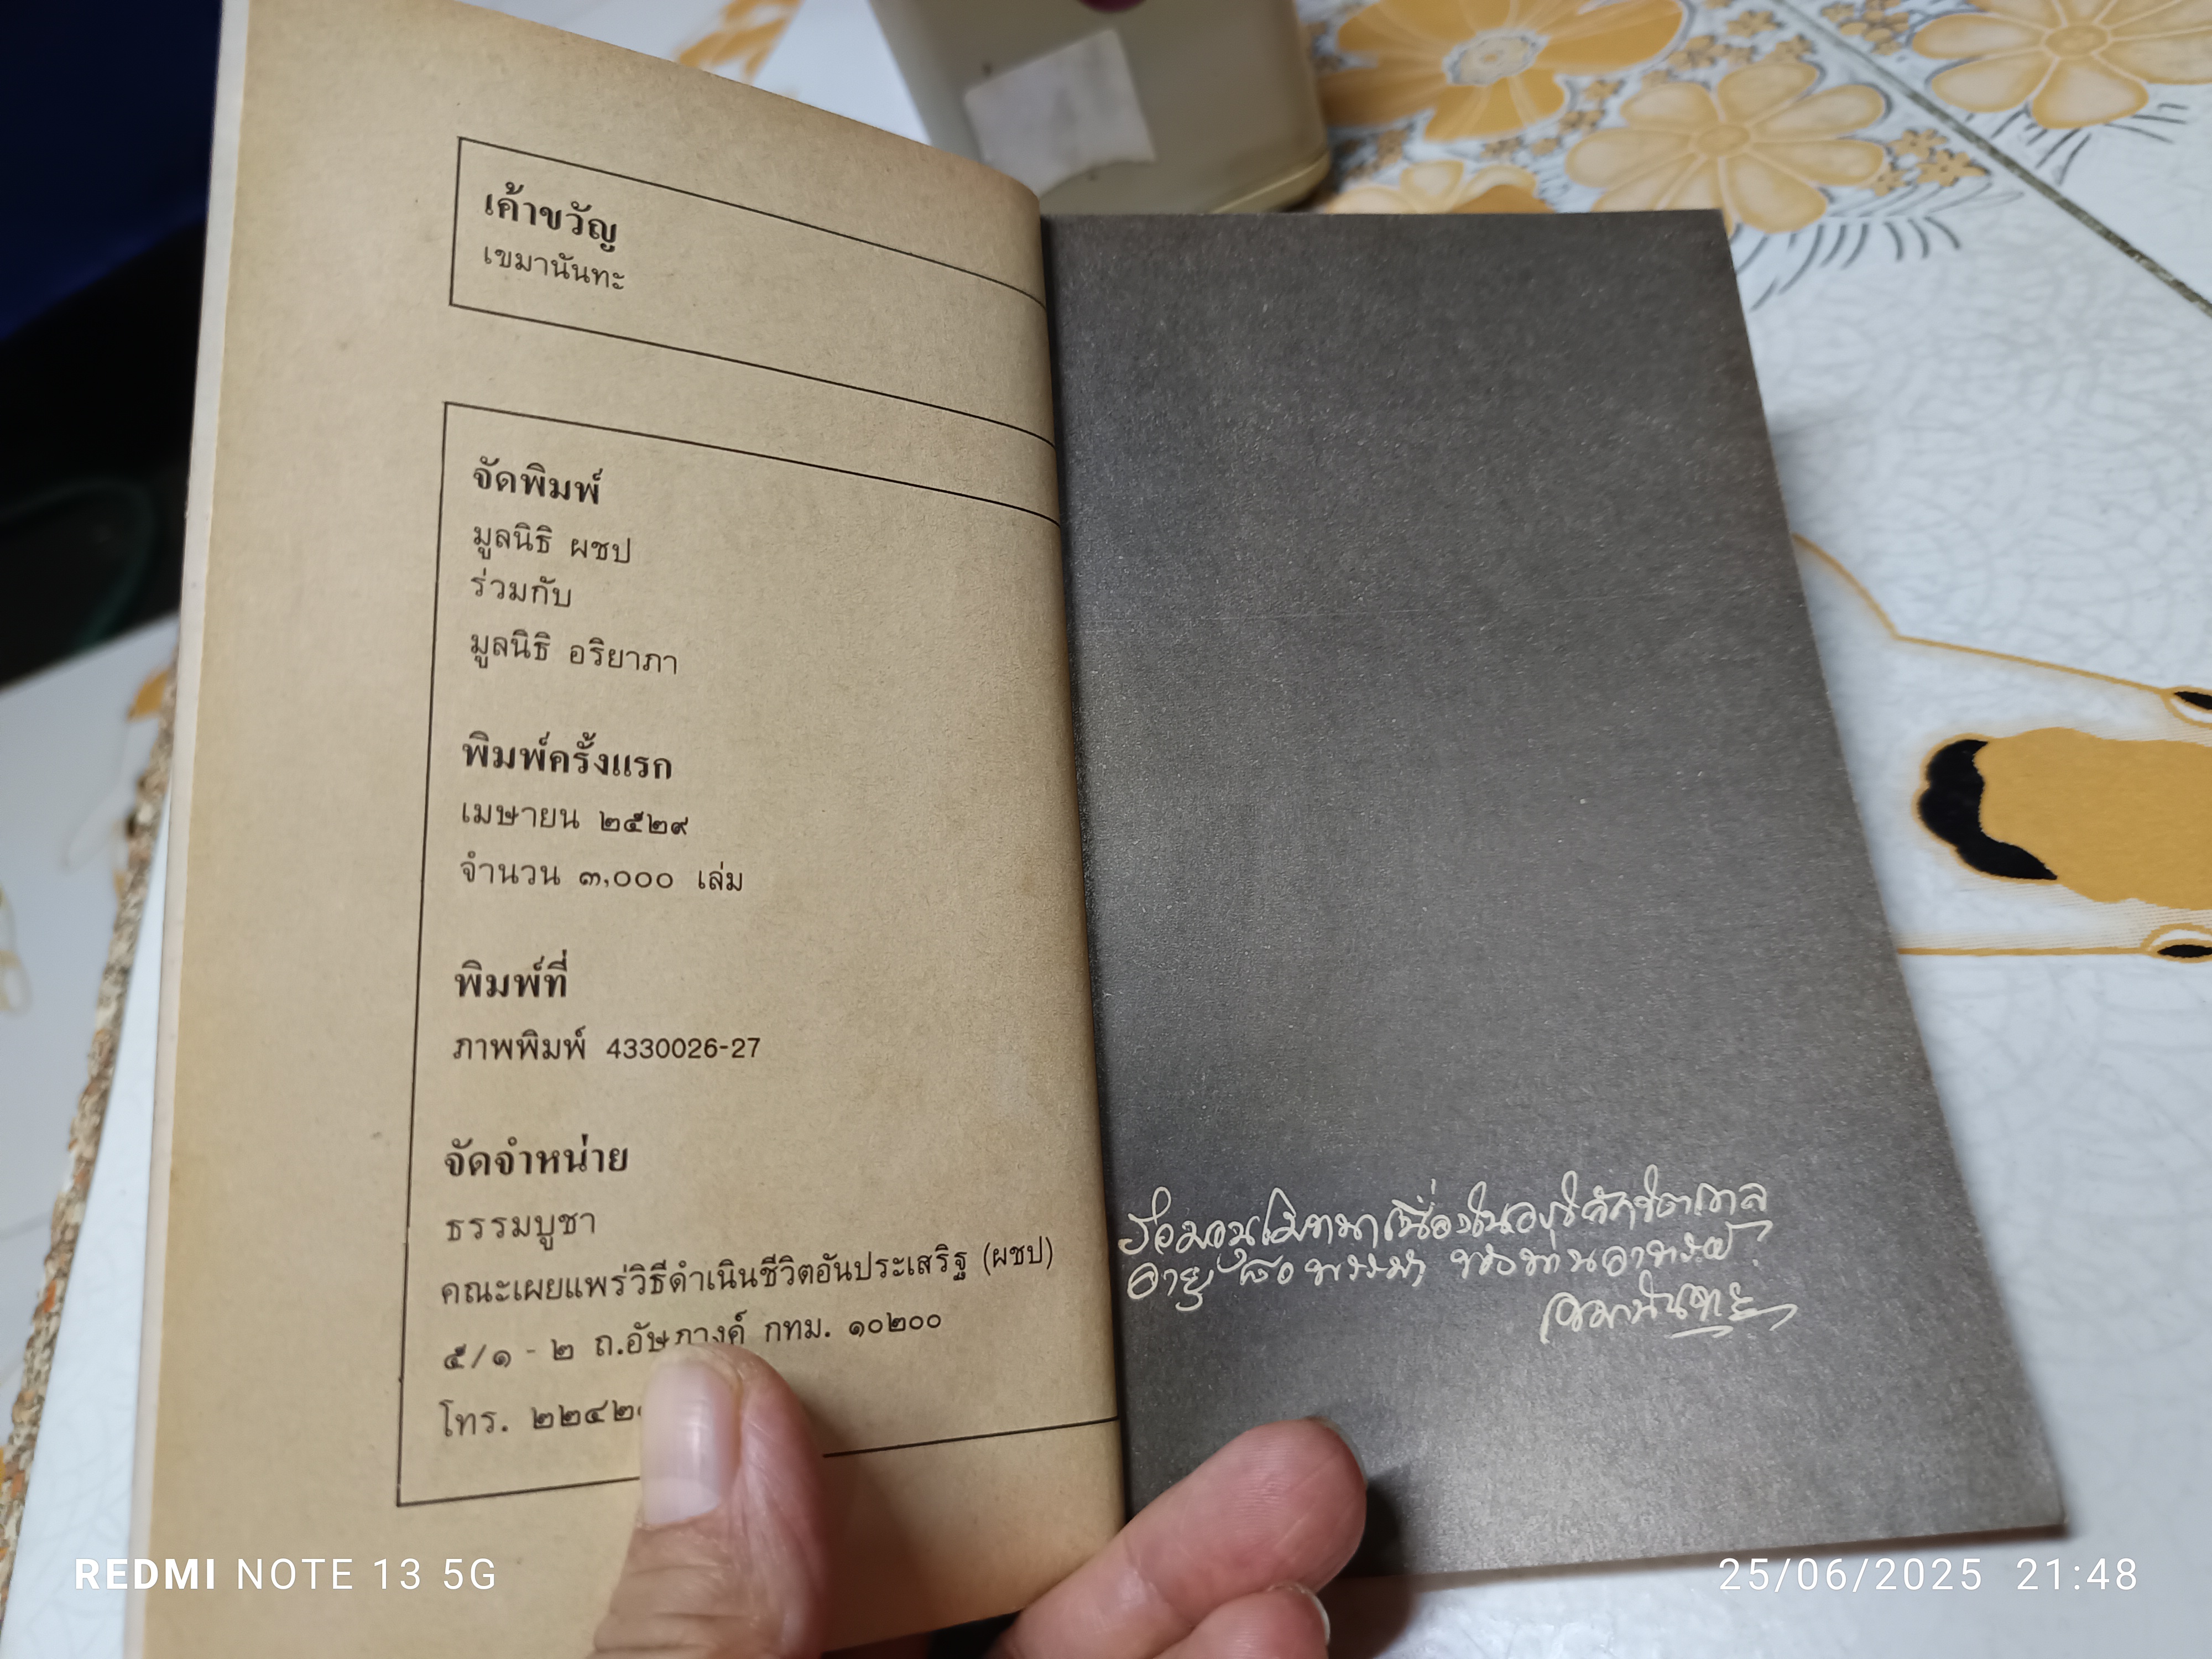 เค้าขวัญ
เขมานันทะ
จัดพิมพ์
มูลนิธิ ผชป
ร่วมกับ
มูลนิธิ อริยาภา
พิมพ์ครั้งแรก
เมษายน ๒๕๒๙
จำนวน ๓,๐๐๐ เล่ม
พิมพ์ที่
ภาพพิมพ์ 4330026-27
จัดจำหน่าย
ธรรมบูชา
คณะเผยแพร่วิธีดำเนินชีวิตอันประเสริฐ (ผชป)
๕/๑ - ๒ ถ.อัษฎางค์ กทม. ๑๐๒๐๐
โทร. ๒๒๔๒
อายุ ๘๐ พรรษา ของท่านอาจารย์
เขมานันทะ
REDMI NOTE 13 5G
25/06/2025 21:48